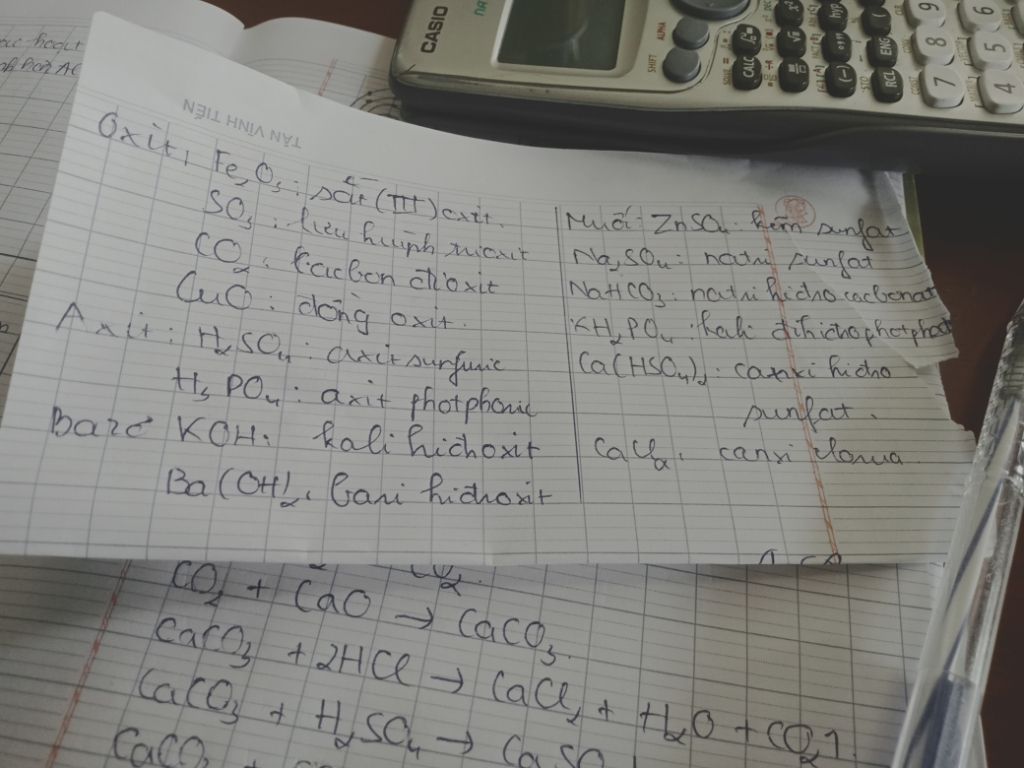 CASIO
SHIFT
ALPHA
CALC
ENG
RCL
(-)
hyp
9
6
8
5
7
4
TÂN VĨNH TIẾN
Oxit: Fe2O3: sắt (III) oxit.
SO3: lưu huỳnh trioxit
CO2: cacbon đioxit
CuO: đồng oxit.
Axit: H2SO4: axit sunfuric
H3PO4: axit photphoric
Bazơ KOH: kali hidroxit
Ba(OH)2: bari hidroxit
Muối: ZnSO4: kẽm sunfat
Na2SO4: natri sunfat
NaHCO3: natri hidro cacbonat
KH2PO4: kali đihidrophotphat
Ca(HSO4)2: canxi hidro
sunfat.
CaCl2: canxi clorua
CO2 + CaO → CaCO3.
CaCO3 + 2HCl → CaCl2 + H2O + CO2↑.
CaCO3 + H2SO4 → CaSO4